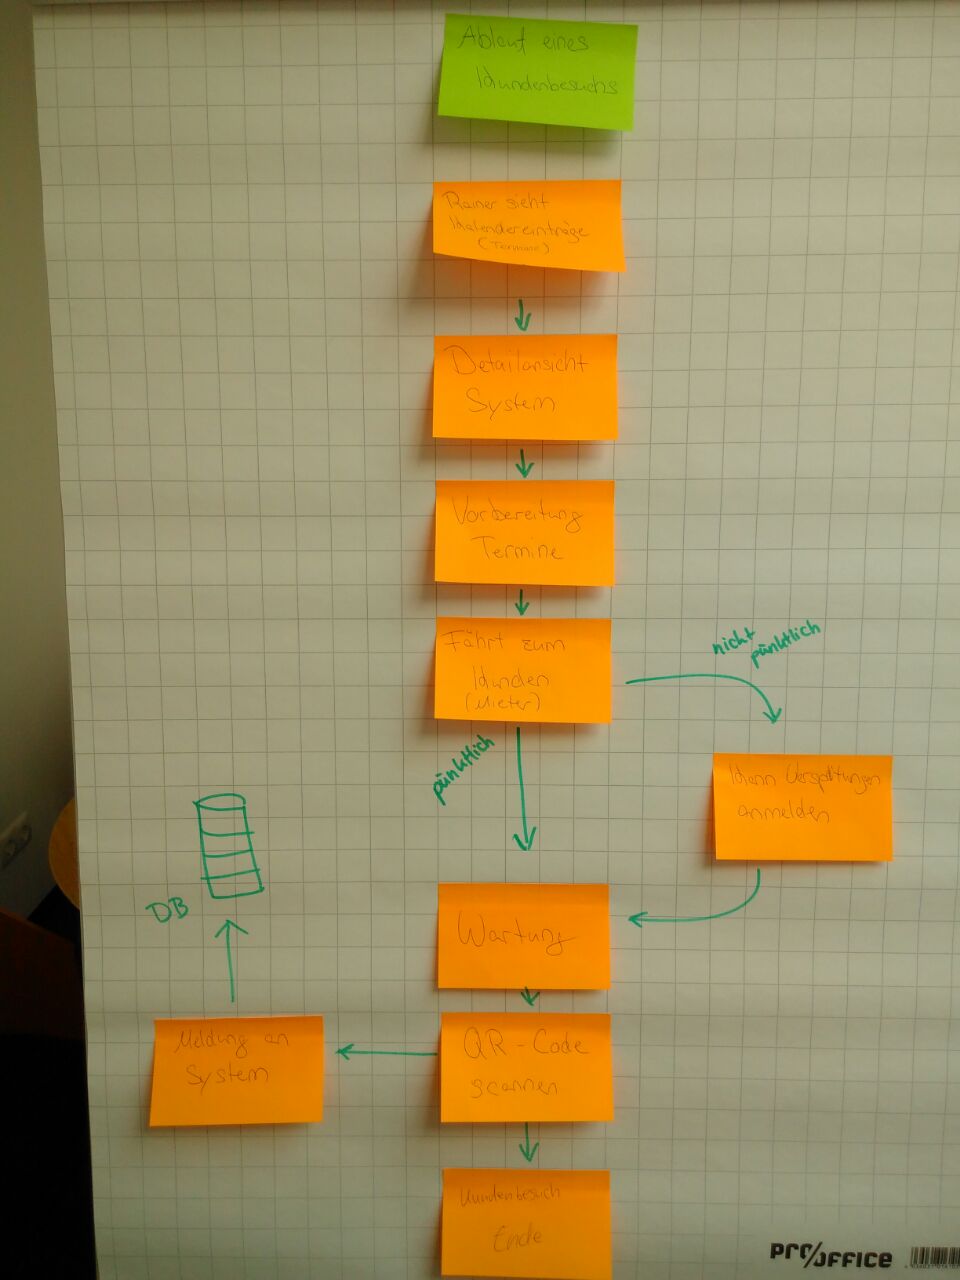 Ablauf eines
Kundenbesuchs
Rainer sieht
Kalendereinträge
(Termine)
Detailansicht
System
Vorbereitung
Termine
Fährt zum
Kunden
(Mieter)
nicht
pünktlich
pünktlich
Kann Verspätungen
anmelden
DB
Wartung
QR-Code
scannen
Meldung an
System
Kundenbesuch
Ende
PRO/OFFICE